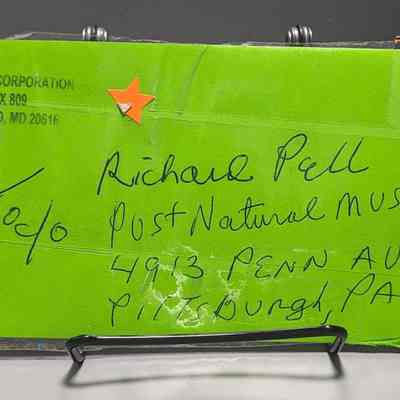 CORPORATION
X 809
, MD 20616
Richard Pell
Post Natural Mus
4913 PENN AV
PITTSburgh, PA